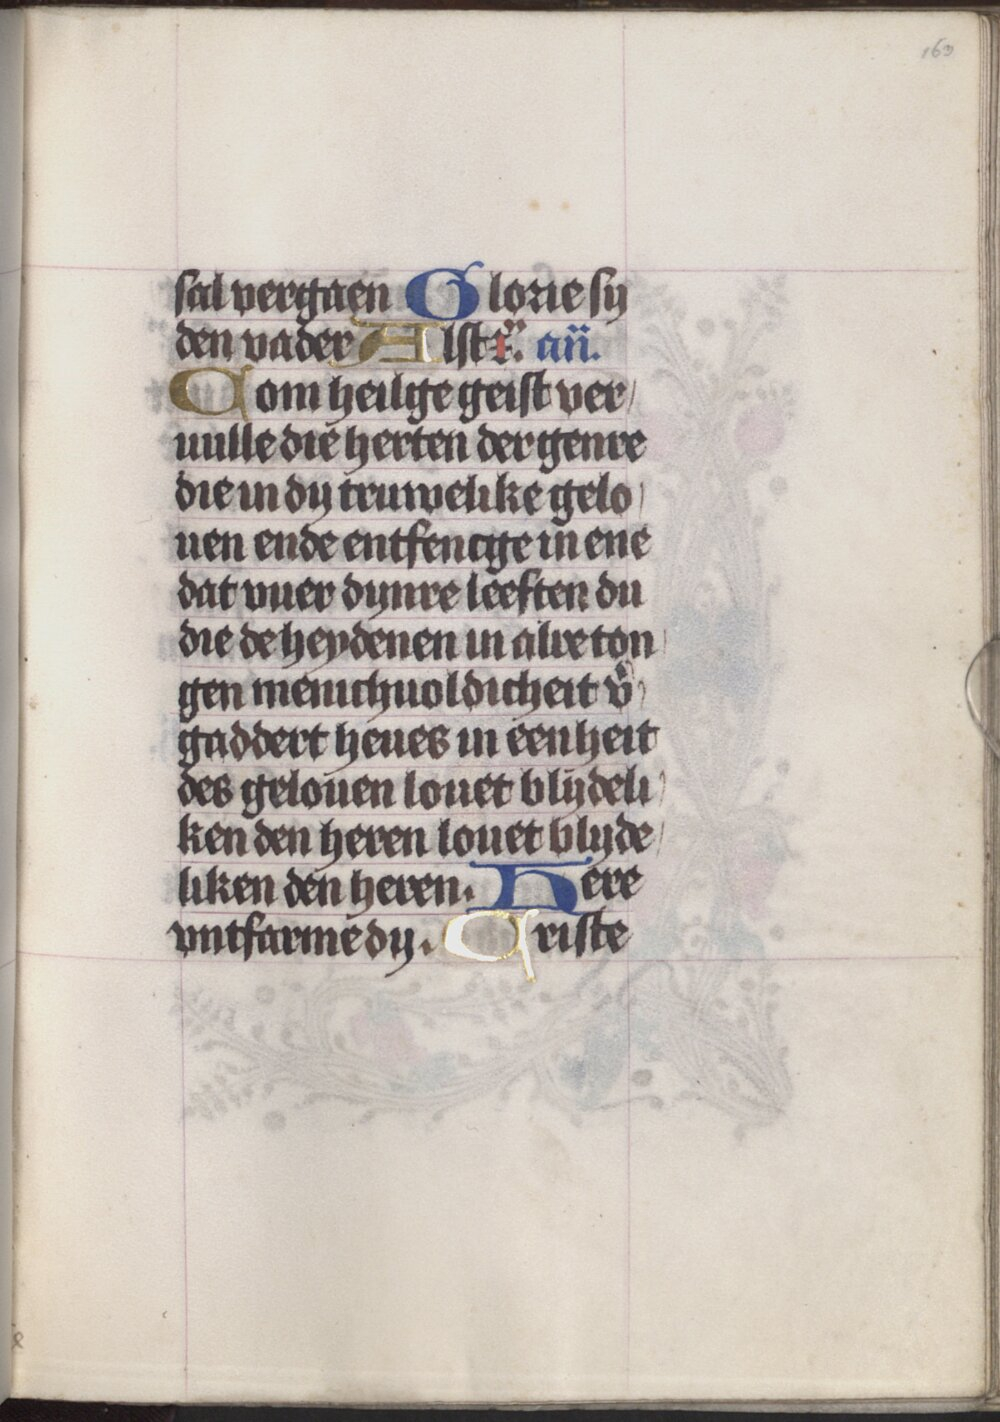 163
sal vergaen Glorie sy
den vader Alst r̄. an̄.
Com heilge geist ver/
uulle die herten der genre
die in dy truwelike gelo/
uen ende entfencge in ene
dat vuer dynre leeften du
die de heydenen in alre ton/
gen menichuoldicheit v̄/
gaddert heues in eenheit
des gelouen louet blydeli/
ken den heren louet blyde/
liken den heren. Here
vntfarme dy. Criste